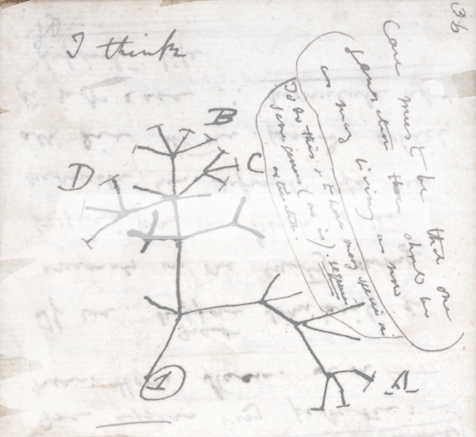 36
I think
B
D
C
A
1
Case must be that one
generation then should be
as many living as now
To do this & to have many species in
same genus (as is). requires
extinction.